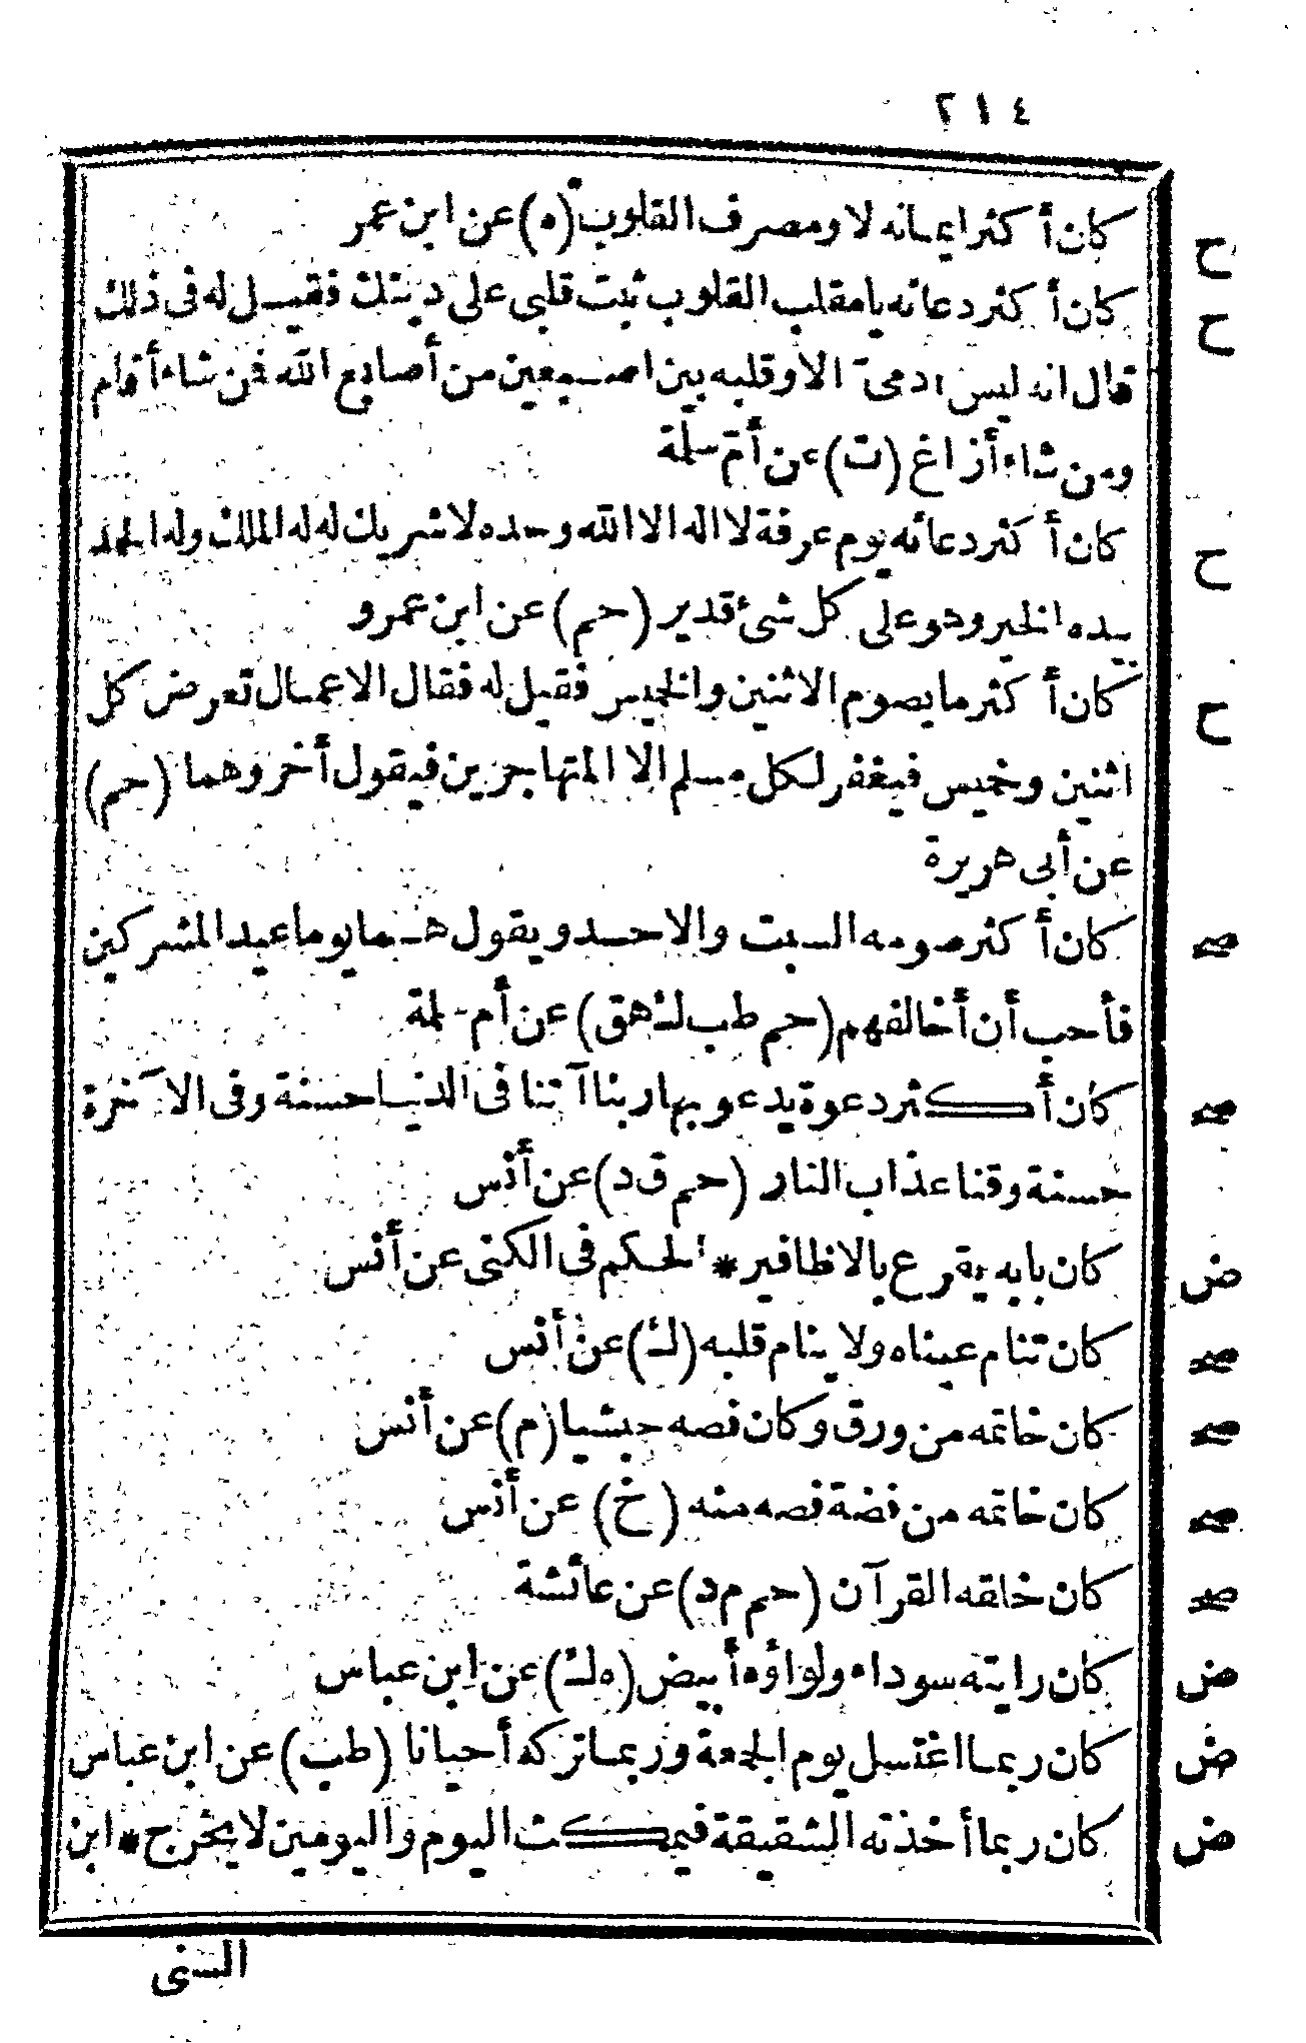 ٢١٤
ح كان أكثر ايمانه لا ومصرف القلوب (ه) عن ابن عمر
ح كان أكثر دعائه يا مقلب القلوب ثبت قلبى على دينك فقيل له فى ذلك
قال انه ليس ادمى الا وقلبه بين اصبعين من أصابع الله فن شاء أقام
ومن شاء أزاغ (ت) عن أم سلمة
ح كان أكثر دعائه يوم عرفة لا اله الا الله وحده لا شريك له له الملك وله الحمد
بيده الخير وهو على كل شئ قدير (حم) عن ابن عمرو
ح كان أكثر ما يصوم الاثنين والخميس فقيل له فقال الاعمال تعرض كل
اثنين وخميس فيغفر لكل مسلم الا المتهاجرين فيقول أخروهما (حم)
عن أبى هريرة
صح كان أكثر صومه السبت والاحد ويقول هما يوما عيد المشركين
فأحب أن أخالفهم (حم طب ك هق) عن أم سلمة
صح كان أكثر دعوة يدعو بها ربنا آتنا فى الدنيا حسنة وفى الآخرة
حسنة وقنا عذاب النار (حم ق د) عن أنس
ض كان بابه يقرع بالاظافير * الحكم فى الكنى عن أنس
صح كان تنام عيناه ولا ينام قلبه (ك) عن أنس
صح كان خاتمه من ورق وكان فصه حبشيا (م) عن أنس
صح كان خاتمه من فضة فصه منه (خ) عن أنس
صح كان خلقه القرآن (حم م د) عن عائشة
ض كان رايته سوداء ولواؤه أبيض (ه ك) عن ابن عباس
ض كان ربما اغتسل يوم الجمعة وربما تركه أحيانا (طب) عن ابن عباس
ض كان ربما أخذته الشقيقة فيمكث اليوم واليومين لا يخرج * ابن
السنى